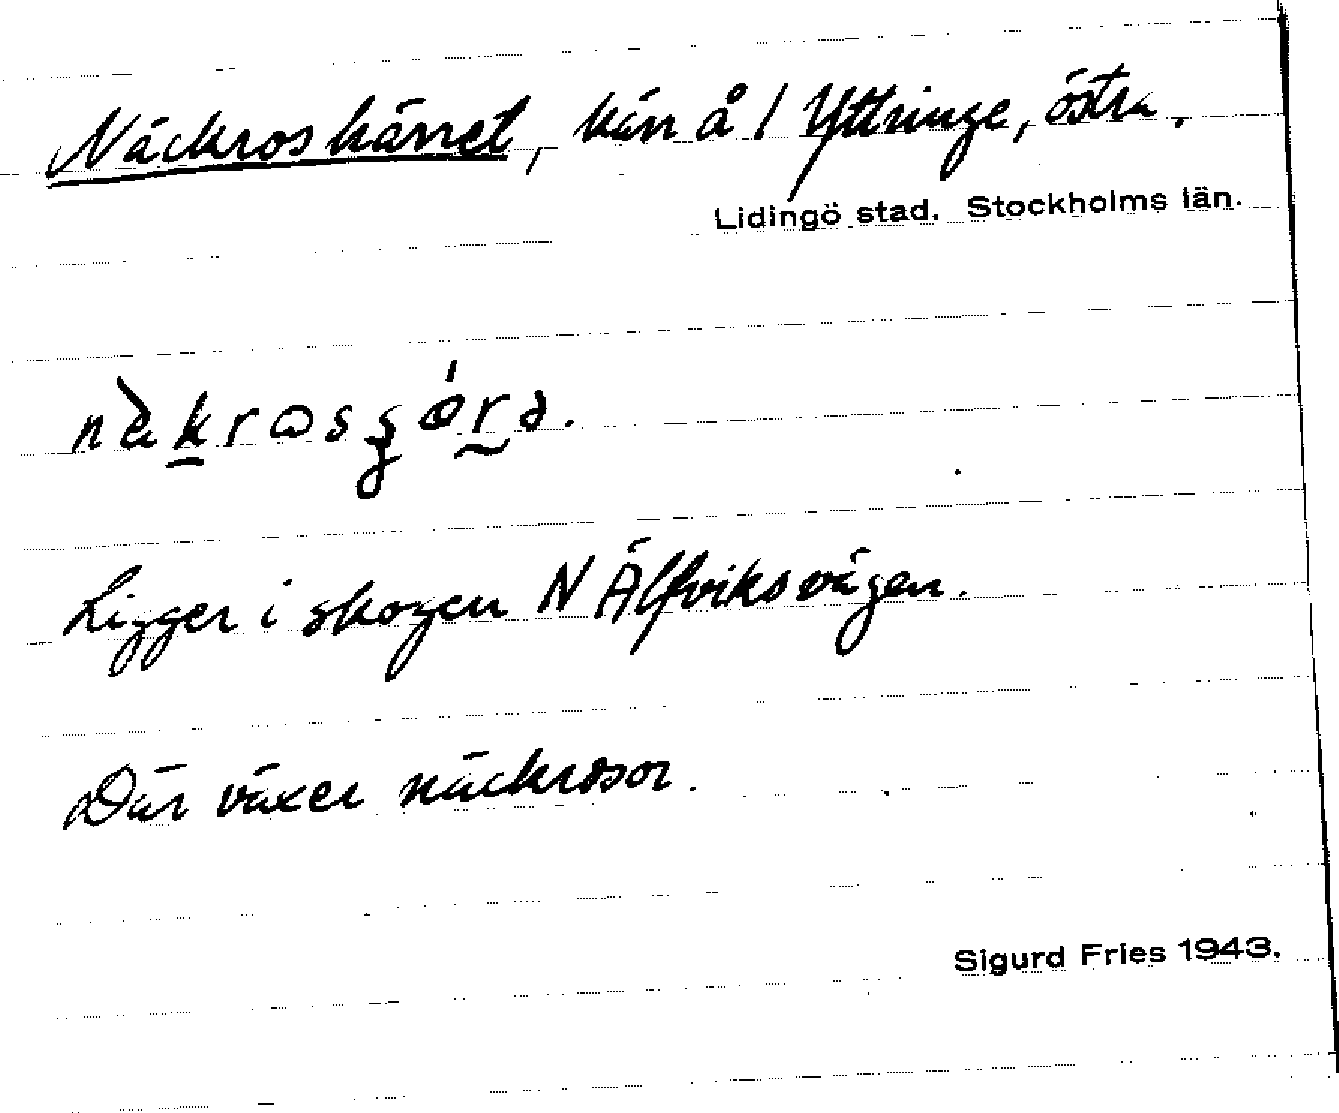 Näckroskärret, kärr å 1 Yttringe, östra.
Lidingö stad. Stockholms län.
Ligger i skogen N Älfviksvägen.
Där växer näckrosor.
Sigurd Fries 1943.